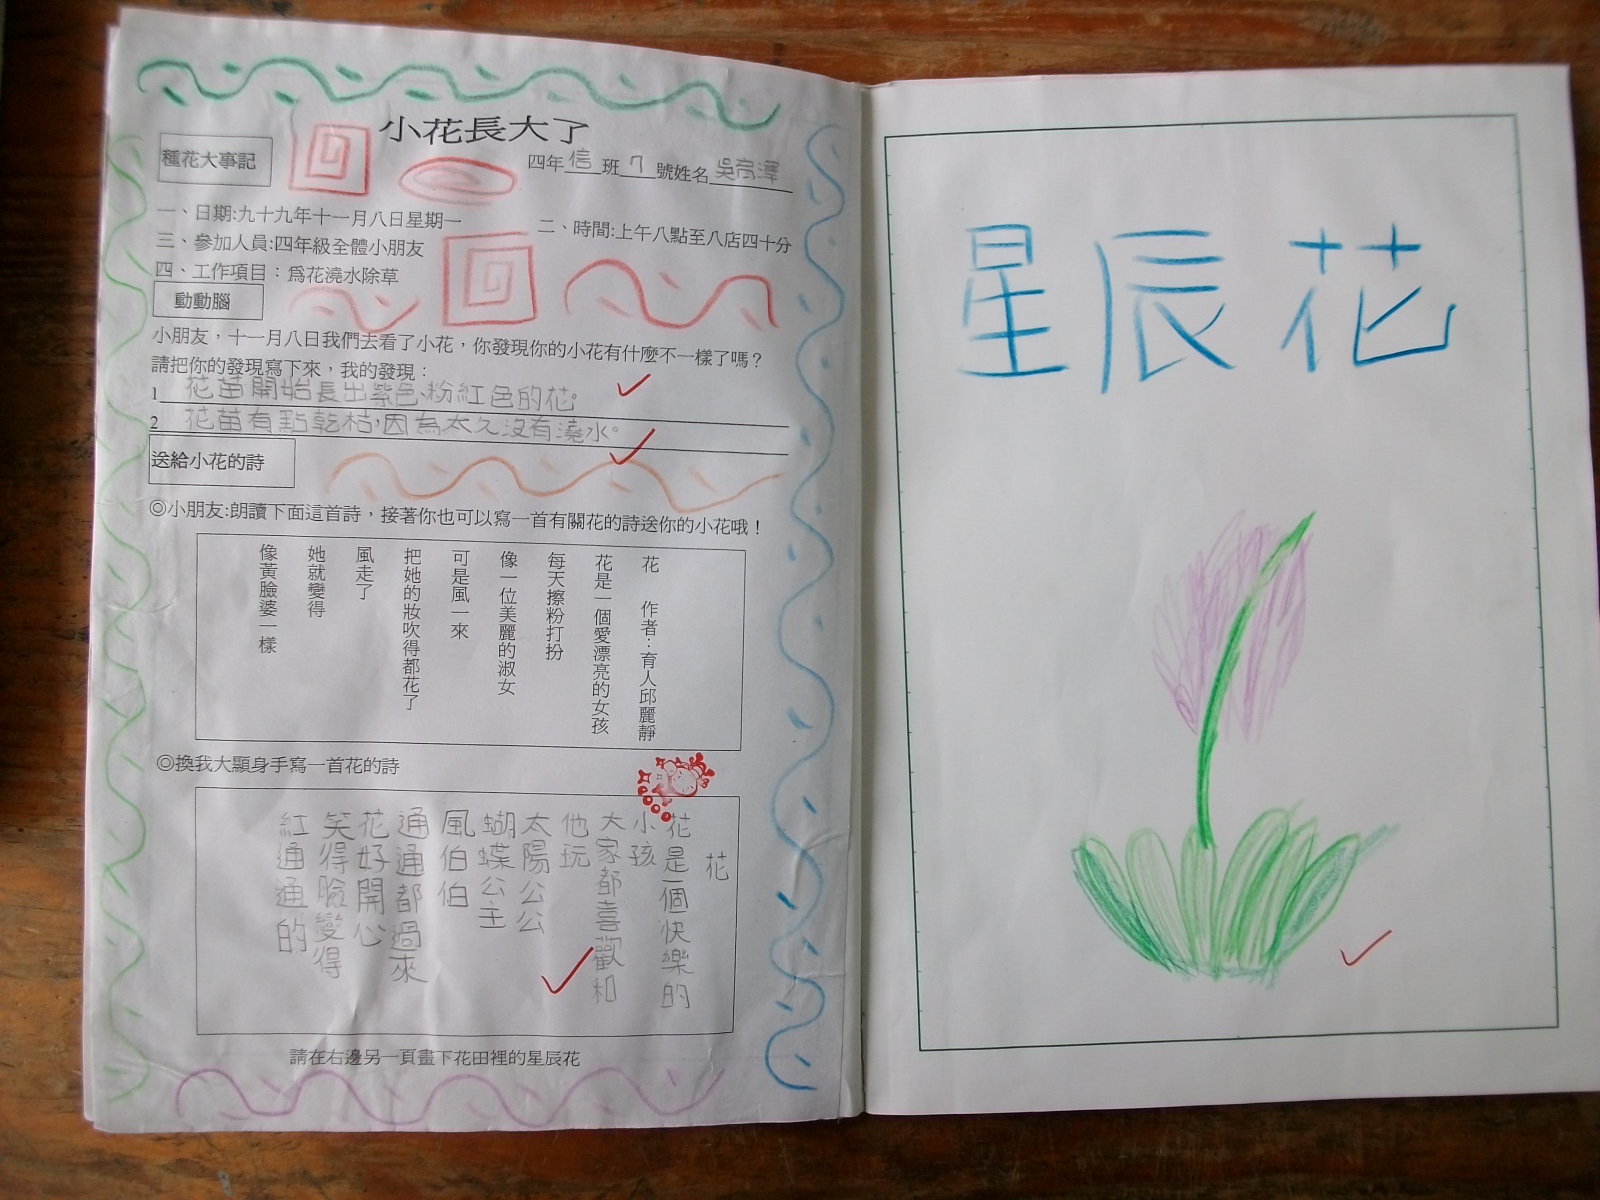 小花長大了
種花大事記
四年信班7號姓名吳亮澤
一、日期:九十九年十一月八日星期一
二、時間:上午八點至八店四十分
三、參加人員:四年級全體小朋友
四、工作項目：為花澆水除草
動動腦
小朋友，十一月八日我們去看了小花，你發現你的小花有什麼不一樣了嗎？
請把你的發現寫下來，我的發現：
1 花苗開始長出紫色、粉紅色的花。
2 花苗有點乾枯，因為太久沒有澆水。
送給小花的詩
◎小朋友:朗讀下面這首詩，接著你也可以寫一首有關花的詩送你的小花哦！
花 作者：育人邱麗靜
花是一個愛漂亮的女孩
每天擦粉打扮
像一位美麗的淑女
可是風一來
把她的妝吹得都花了
風走了
她就變得
像黃臉婆一樣
◎換我大顯身手寫一首花的詩
花
花是一個快樂的
小孩
大家都喜歡和
他玩
太陽公公
蝴蝶公主
風伯伯
通通都過來
花好開心
笑得臉變得
紅通通的
請在右邊另一頁畫下花田裡的星辰花
星辰花